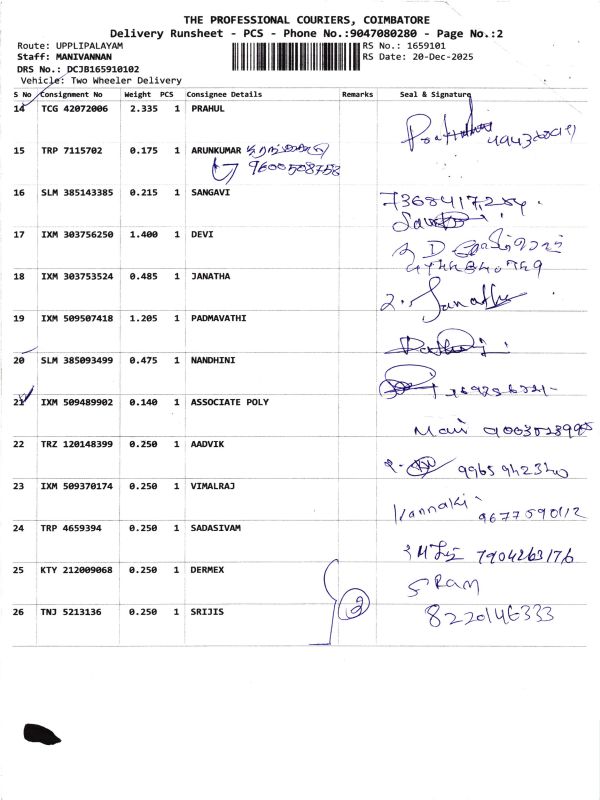 THE PROFESSIONAL COURIERS, COIMBATORE
Delivery Runsheet - PCS - Phone No.:9047080280 - Page No.:2
Route: UPPLIPALAYAM RS No.: 1659101
Staff: MANIVANNAN RS Date: 20-Dec-2025
DRS No.: DCJB165910102
Vehicle: Two Wheeler Delivery
S No Consignment No Weight PCS Consignee Details Remarks Seal & Signature
14 TCG 42072006 2.335 1 PRAHUL
15 TRP 7115702 0.175 1 ARUNKUMAR
9600508758
16 SLM 385143385 0.215 1 SANGAVI
17 IXM 303756250 1.400 1 DEVI
18 IXM 303753524 0.485 1 JANATHA
Janatha
19 IXM 509507418 1.205 1 PADMAVATHI
20 SLM 385093499 0.475 1 NANDHINI
21 IXM 509489902 0.140 1 ASSOCIATE POLY
Mani
22 TRZ 120148399 0.250 1 AADVIK
9965942340
23 IXM 509370174 0.250 1 VIMALRAJ
Kannaki
9677590112
24 TRP 4659394 0.250 1 SADASIVAM
7904263176
25 KTY 212009068 0.250 1 DERMEX
S RAM
26 TNJ 5213136 0.250 1 SRIJIS
2
8220146333